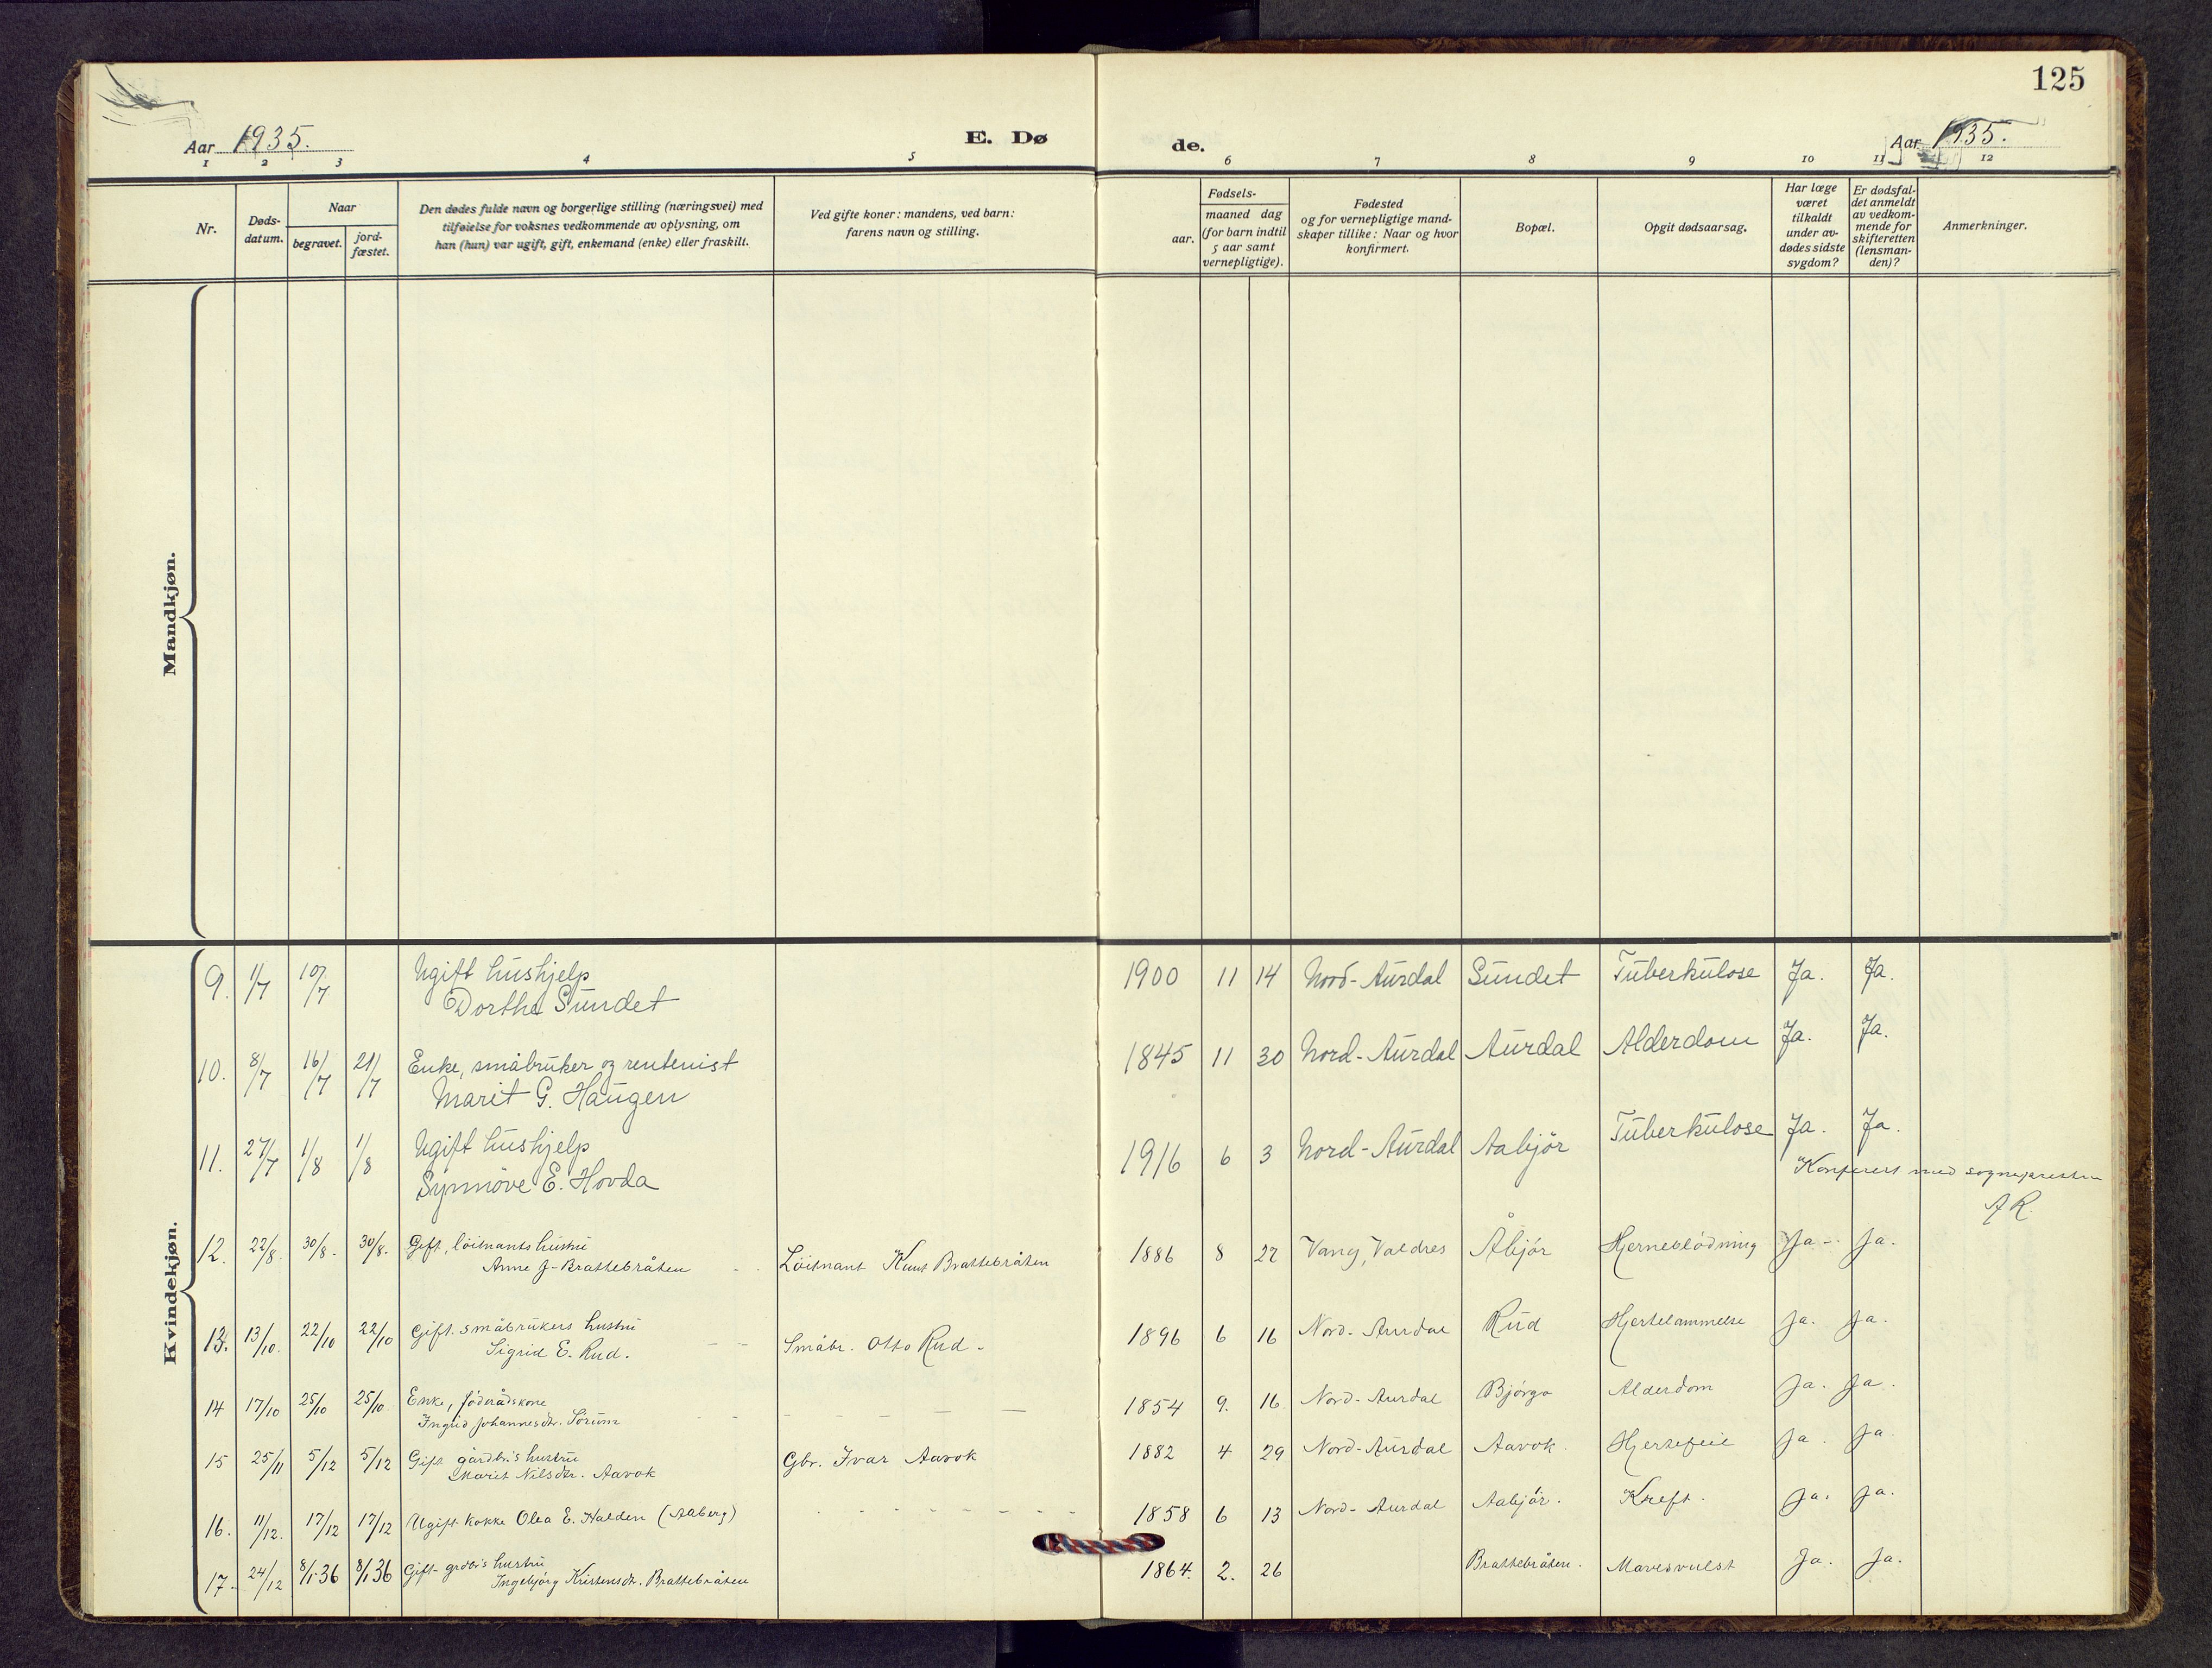 125
Aar 1935.
E. Dø
de.
Aar 1935.
1 2 3 4 5 6 7 8 9 10 11 12
Nr.
Døds-
datum.
Naar
begravet.
jord-
fæstet.
Den dødes fulde navn og borgerlige stilling (næringsvei) med
tilføielse for voksnes vedkommende av oplysning, om
han (hun) var ugift, gift, enkemand (enke) eller fraskilt.
Ved gifte koner: mandens, ved barn:
farens navn og stilling.
Fødsels-
aar.
maaned dag
(for barn indtil
5 aar samt
vernepligtige).
Fødested
og for vernepligtige mand-
skaper tillike: Naar og hvor
konfirmert.
Bopæl.
Opgit dødsaarsag.
Har læge
været
tilkaldt
under av-
dødes sidste
sygdom?
Er dødsfal-
det anmeldt
av vedkom-
mende for
skifteretten
(lensman-
den)?
Anmerkninger.
Mandkjøn.
Kvindekjøn.
9. 1/7 10/7 Ugift hushjelp
Dorthe Sundet 1900 11 14 Nord-Aurdal Sundet Tuberkulose Ja. Ja.
10. 8/7 16/7 21/7 Enke, småbruker og rentenist
Marit G. Haugen 1845 11 30 Nord-Aurdal Aurdal Alderdom Ja. Ja.
11. 27/7 1/8 1/8 Ugift hushjelp
Synnöve E. Hovda 1916 6 3 Nord-Aurdal Aabjör Tuberkulose Ja. Ja.
Konferert med sognepresten
A R.
12. 22/8. 30/8. 30/8. Gift, löitnants hustru
Anne J. Brattebråten Löitnant Knut Brattebråten 1886 8 27 Vang, Valdres Åbjör Hjerneblödning Ja - Ja.
13. 13/10. 22/10 22/10 Gift. småbrukers hustru
Sigrid E. Rud. Småbr. Otto Rud. 1896 6 16 Nord-Aurdal Rud Hjertelammelse Ja. Ja.
14 17/10 25/10 25/10 Enke, föderådskone
Ingrid Johannesdtr. Sörum 1854 9. 16. Nord-Aurdal Björgo Alderdom Ja. Ja.
15 25/11 5/12 5/12 Gift gårdbr's hustru
Marit Nilsdtr. Aavok Gbr. Ivar Aavok 1882 4 29 Nord-Aurdal Aavok. Hjertefeil Ja. Ja.
16. 11/12. 17/12 17/12 Ugift kokke Olea E. Halden (Aaberg) 1858 6 13 Nord-Aurdal Aabjör. Kreft. Ja. Ja.
17. 24/12 8/1.36 8/1.36 Gift grdbr's hustru
Ingebjörg Kristensdtr. Brattebråten 1864. 2. 26 Brattebråten. Mavesvulst Ja. Ja.